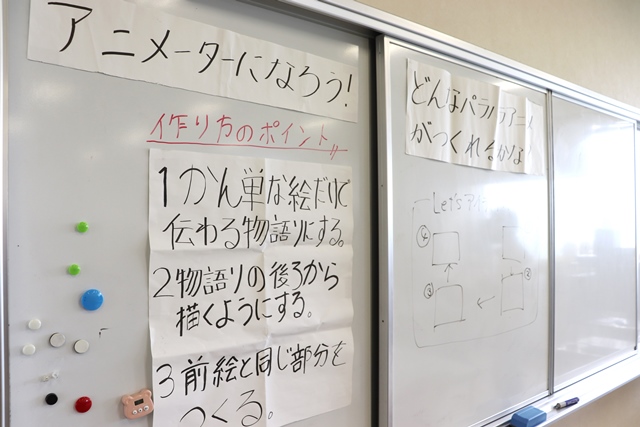 アニメーターになろう!
作り方のポイント
1かん単な絵だけで
伝わる物語りにする。
2物語りの後ろから
描くようにする。
3前絵と同じ部分を
つくる。
どんなパラパラアニメ
がつくれるかな!
Let's アイ
④
③